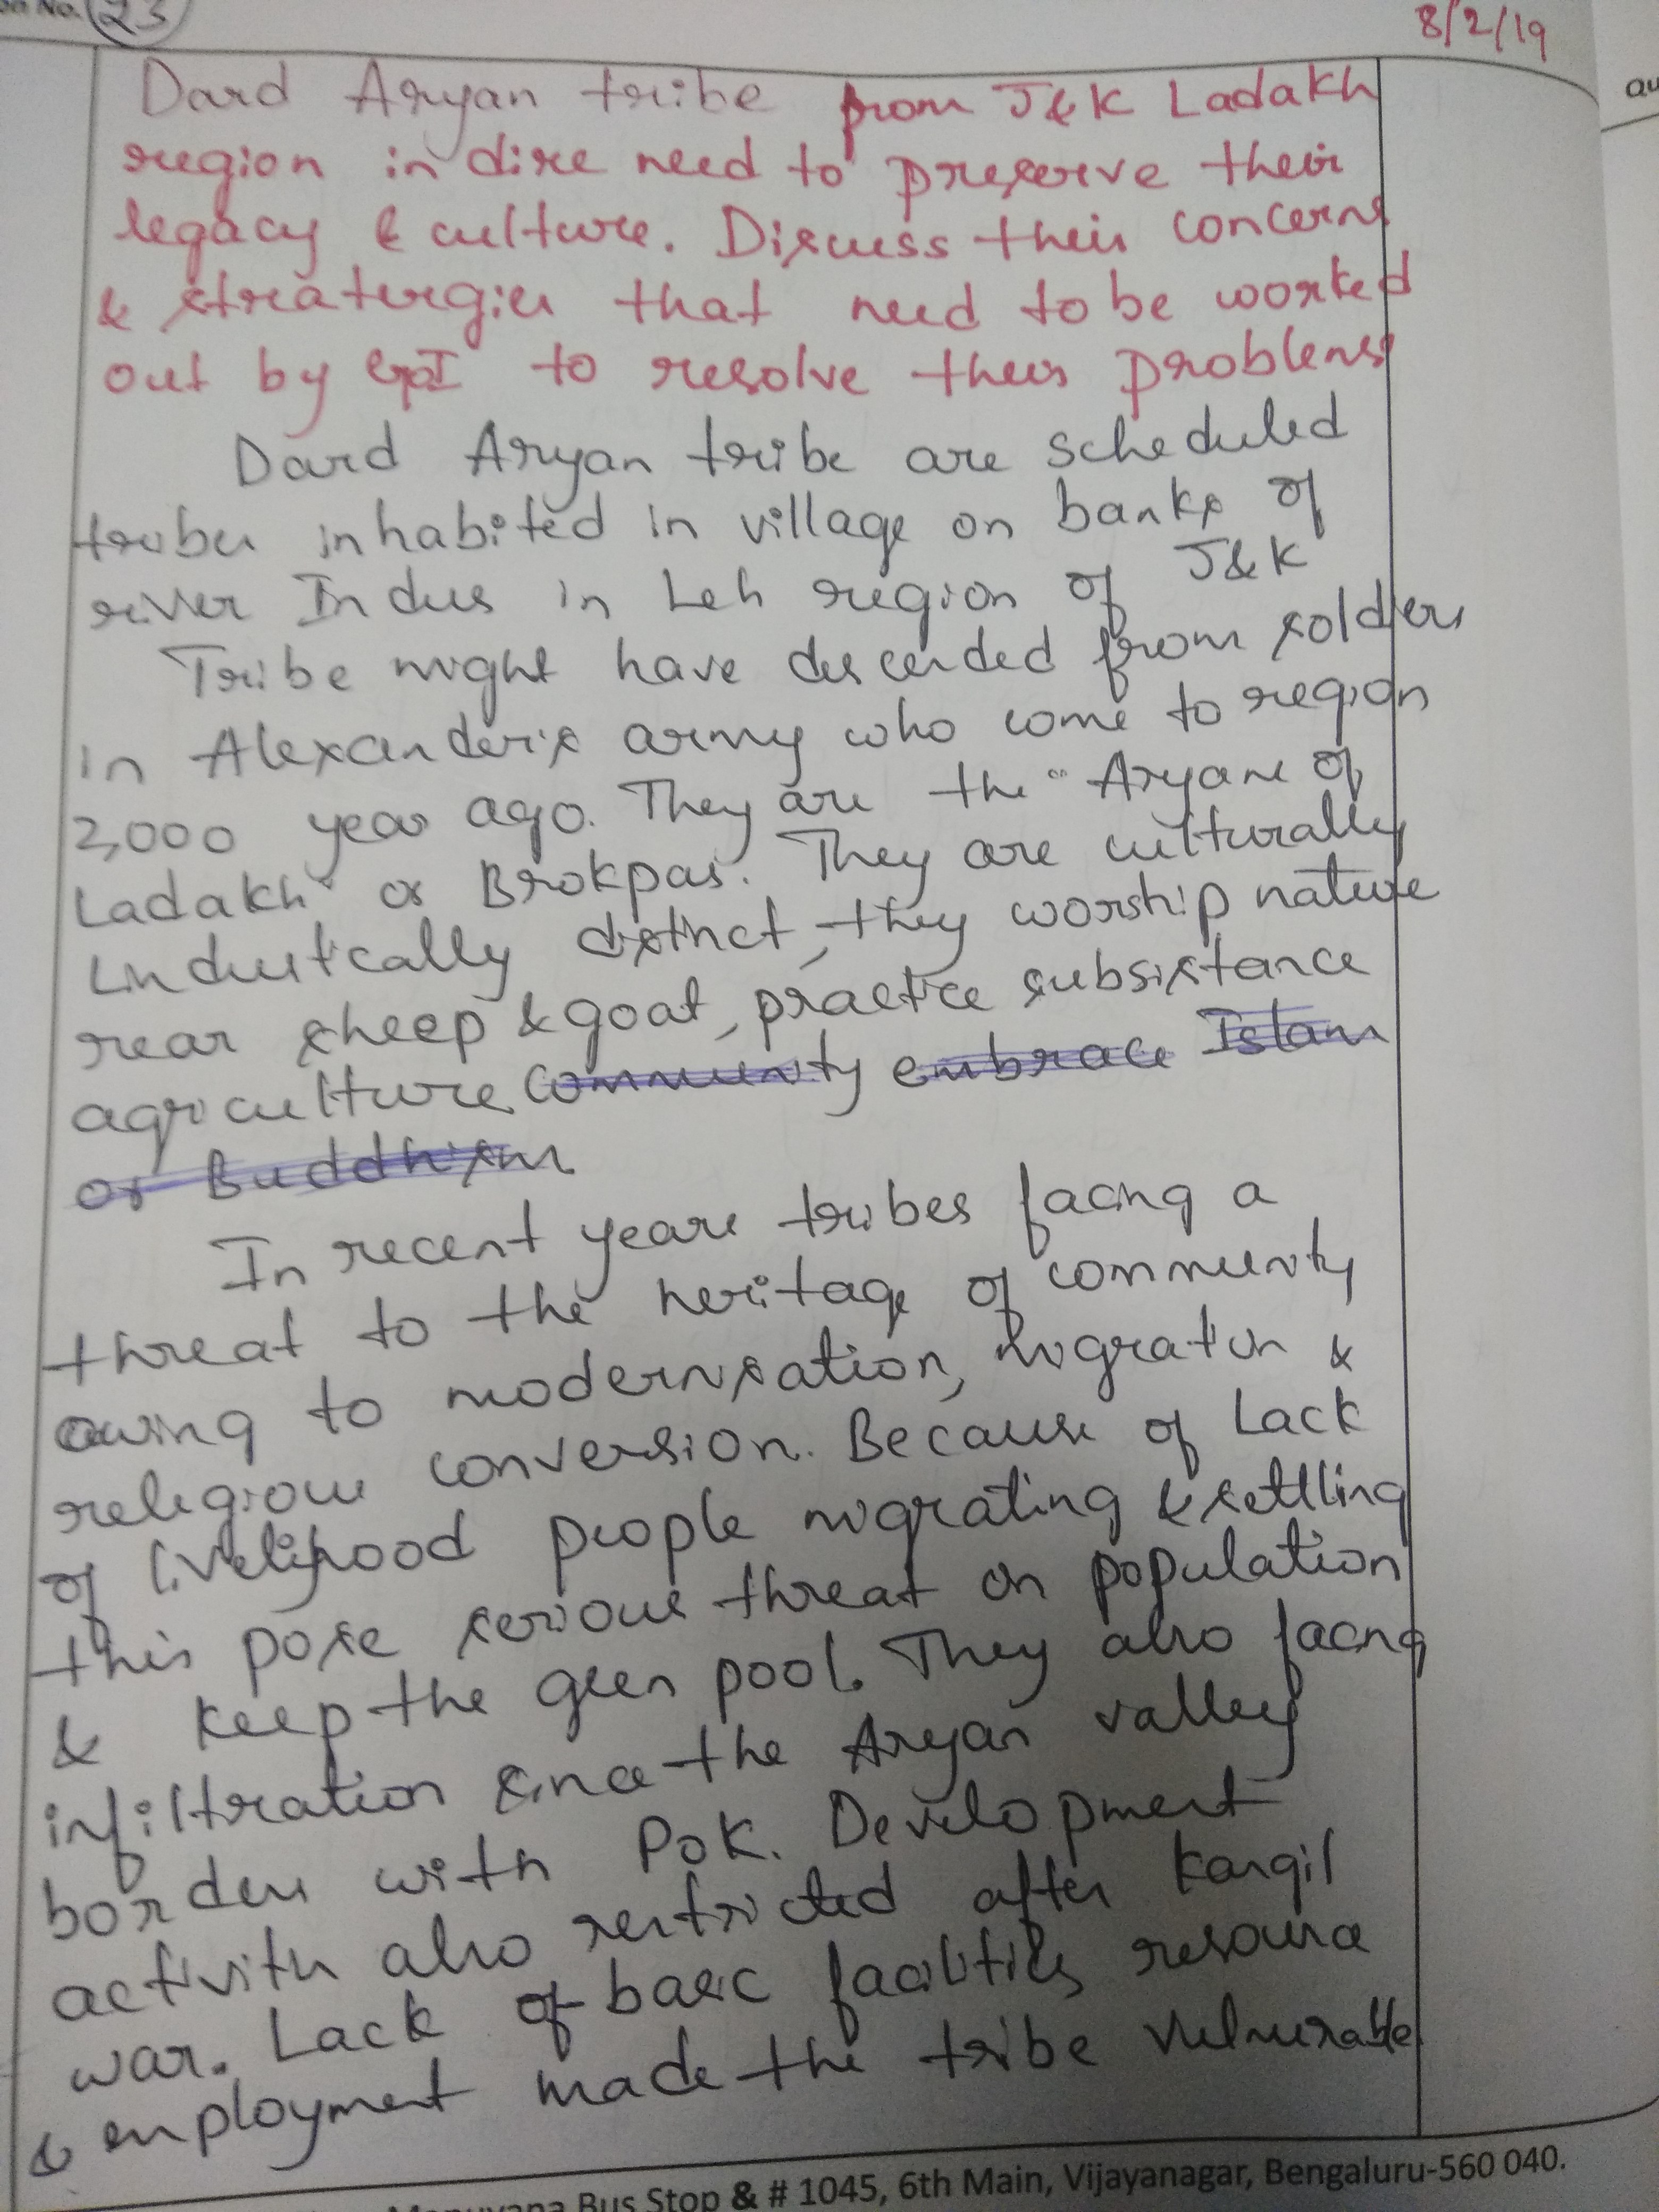 on No. 23
8/2/19
Dard Aryan tribe from J&K Ladakh
region in dire need to preserve their
legacy & culture. Discuss their concerns
& stratergies that need to be worked
out by GoI to resolve their problems
Dard Aryan tribe are scheduled
tribes inhabited in village on banks of
river Indus in Leh region of J&K
Tribe might have descended from soldiers
in Alexander's army who come to region
2,000 year ago. They are the "Aryans of
Ladakh" or Brokpas. They are culturally
Lindustically distinct, they worship nature
rear sheep & goat, practice subsistance
agriculture. Community embrace Islam
or Buddhism.
In recent years tribes facing a
threat to the heritage of community
owing to modernisation, migration &
religious conversion. Because of Lack
of livelihood people migrating & settling
this pose serious threat on population
& keep the geen pool. They also facing
infiltration since the Aryan valley
borders with PoK. Development
activity also restricted after Kargil
war. Lack of basic facilities resource
& employment made the tribe vulnerable
Bus Stop & # 1045, 6th Main, Vijayanagar, Bengaluru-560 040.